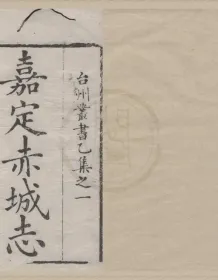 台州叢書乙集之一
嘉定赤城志